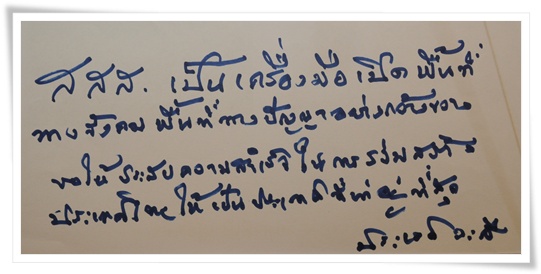 สสส. เป็นเครื่องมือเปิดพื้นที่
ทางสังคม พื้นที่ทางปัญญาอย่างกว้างขวาง
ขอให้ประสบความสำเร็จในการร่วมสร้าง
ประเทศไทยให้เป็นประเทศที่น่าอยู่ที่สุด
ประเวศ วะสี